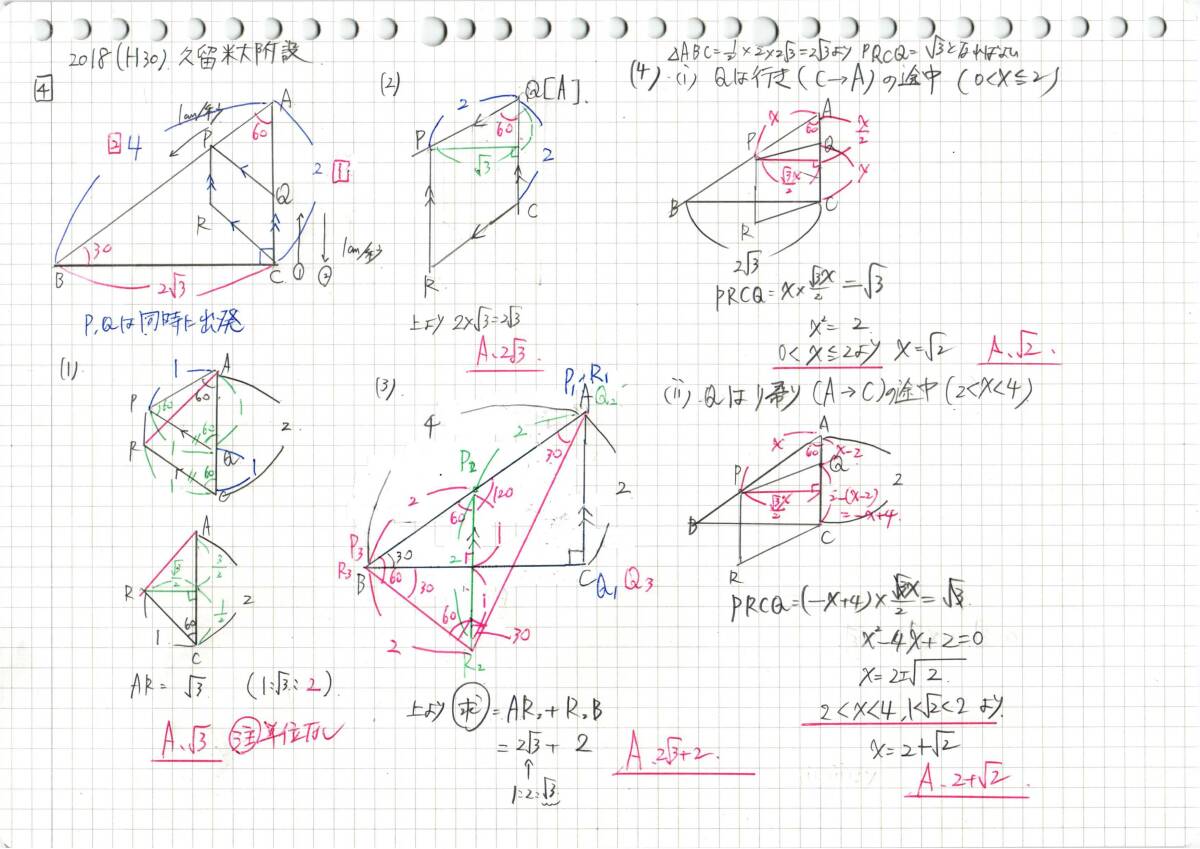 2018 (H30) 久留米大附設
4
1cm/秒
A
60
P
2 4
2 1
Q
R
30
B
C
2√3
① ②
1cm/秒
P, Qは同時に出発
(1)
1
A
P
60
60
1
2
R
1
60
Q
1
60
1
C
A
R
√3/2
3/2
2
1/2
60
1
C
AR = √3 (1:√3:2)
A. √3 注 単位なし
(2)
2
Q[A].
60
P
√3
2
C
R
上より 2×√3=2√3
A. 2√3
(3)
P₁, R₁
A Q₂
4
2
30
P₂
2
120
60
2
P₃
R₃
B
30
60
30
2
1
C
Q₁ Q₃
1
60
30
2
R₂
上より 求 = AR₂ + R₂B
= 2√3 + 2
↑
1:2:√3
A. 2√3+2.
△ABC = 1/2 × 2 × 2√3 = 2√3より PRCQ = √3となればよい
(4) (i) Qは行き (C→A) の途中 (0<x≦2)
A
x
60
x/2
P
Q
√3x/2
x
B
C
R
2√3
PRCQ = x × √3x/2 = √3
x² = 2
0 < x ≦ 2より x = √2
A. √2.
(ii) Qは帰り (A→C) の途中 (2<x<4)
A
x
60
x-2
P
Q
2
√3x/2
2-(x-2)
= -x+4.
B
C
R
PRCQ = (-x+4) × √3x/2 = √3
x² - 4x + 2 = 0
x = 2±√2
2 < x < 4, 1<√2<2 より
x = 2+√2
A. 2+√2